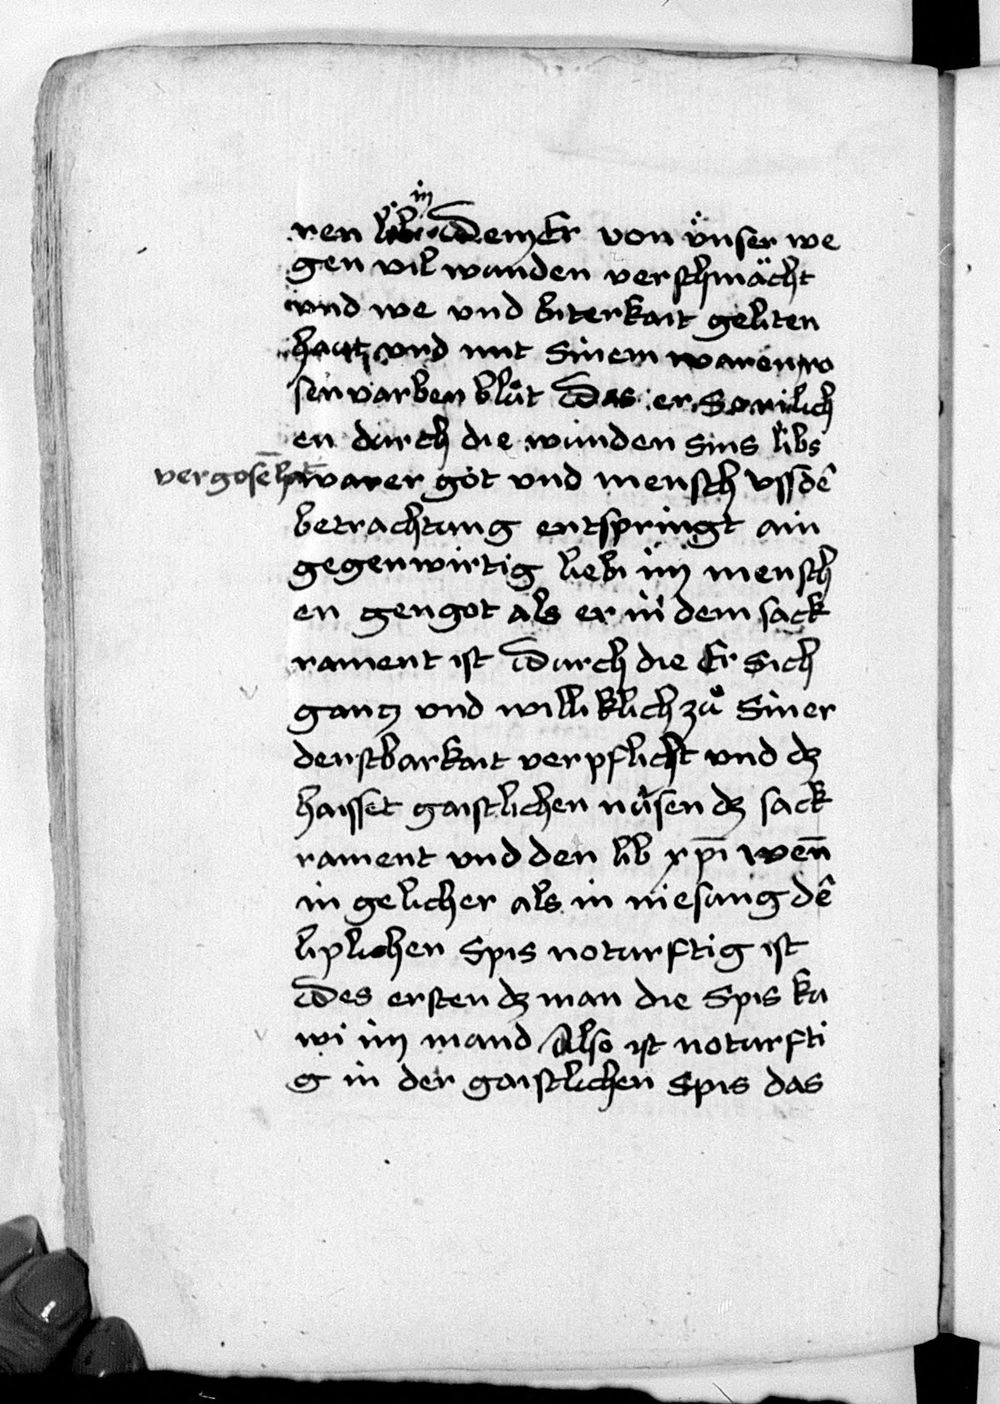 in
ren libi Dem Er von v̈nser we
gen vil wunden verschmächt
vnd we vnd biterkait geliten
haut vnd mit Sinem waren ro
senvarben blůt Das er
en durch die wunden sins libs
vergosē hat warer got vnd mensch vssdē
betrachtung entspringt ain
gegenwirtig liebi im mensch
en gengot als er in dem sack
rament ist Durch die Er Sich
gantz vnd williklich zů Siner
denstbarkait verpflicht vnd dz
haisset gaistlichen nüsen dz sack
rament vnd den lib xp̄i wen̄
in gelicher als in niesung dē
liplichen Spis noturftig ist
Des ersten dz man die Spis ku
wi im mund Also ist noturfti
g in der gaistlichen Spis das